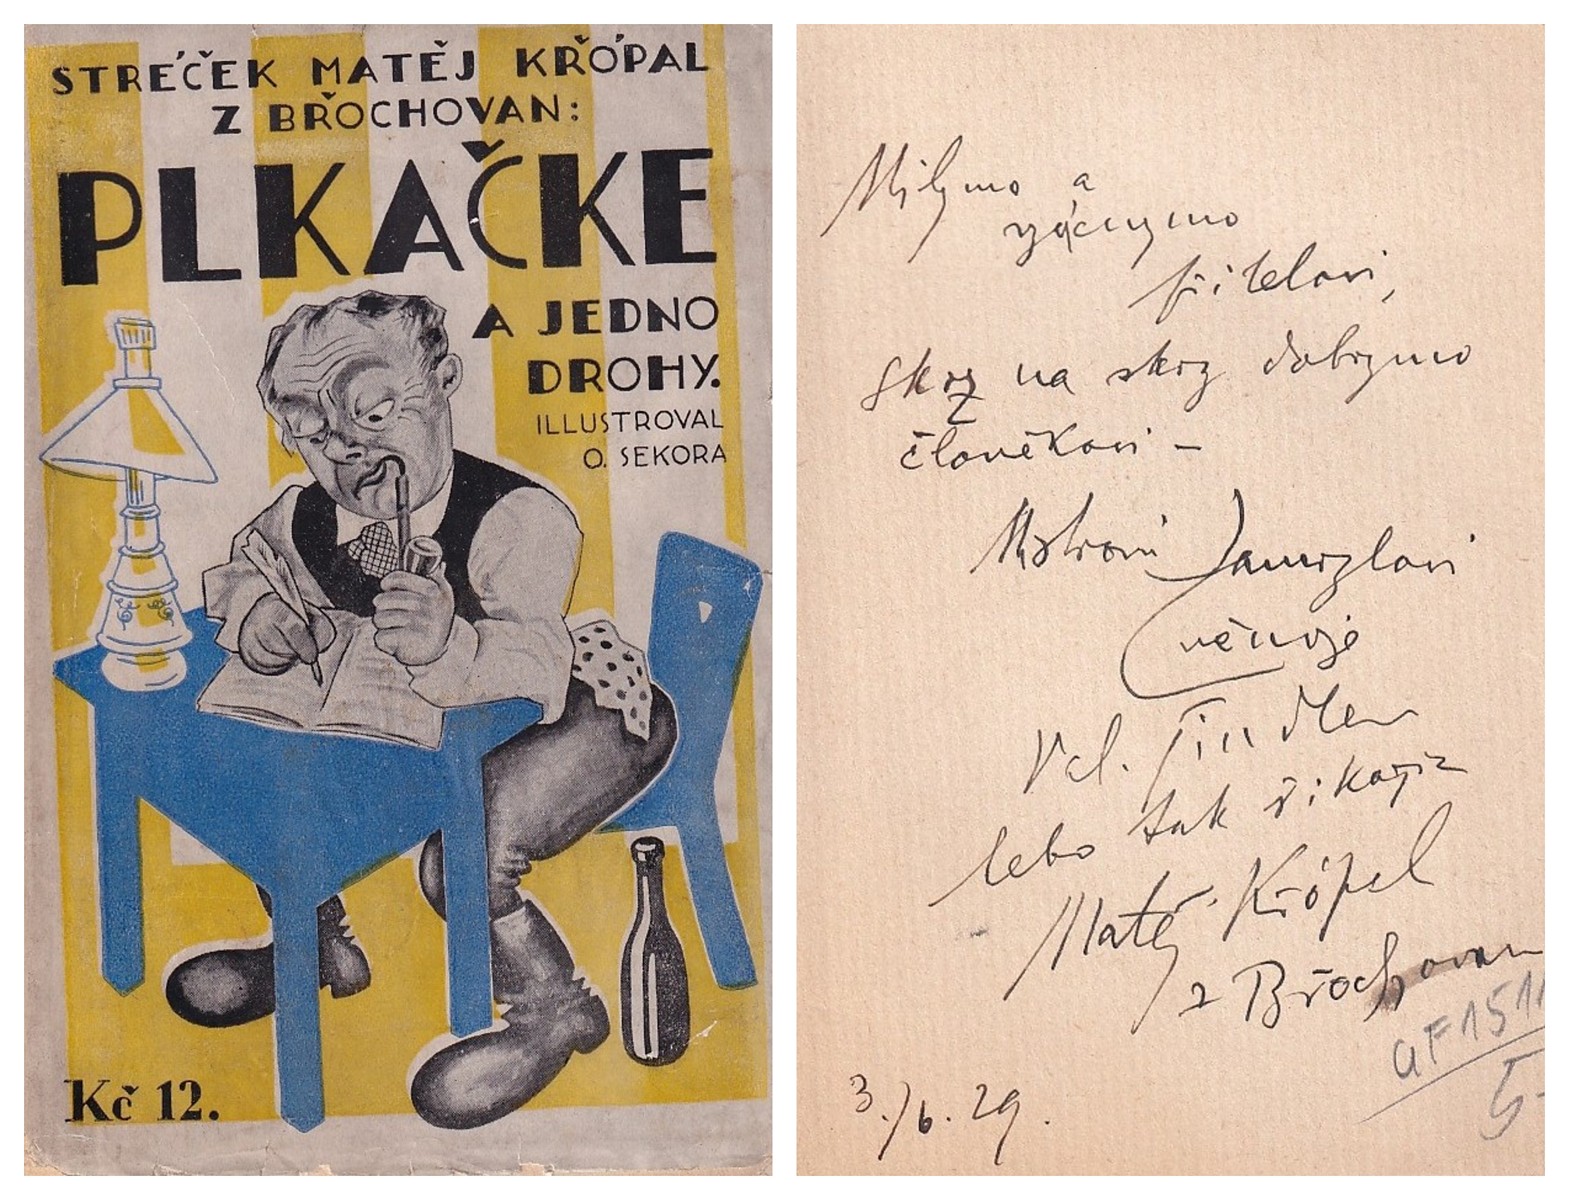 STRÉČEK MATĚJ KŘÓPAL
Z BŘOCHOVAN:
PLKAČKE
A JEDNO
DROHY.
ILLUSTROVAL
O. SEKORA
Kč 12.
Milymo a
vzácnymo
přítelovi,
skrz na skrz dobrymo
člověkovi –
Mistrovi
věnuje
Val. Jindler
lebo tak řikajic
Matěj Křópal
z Břochovan
3./6. 29.